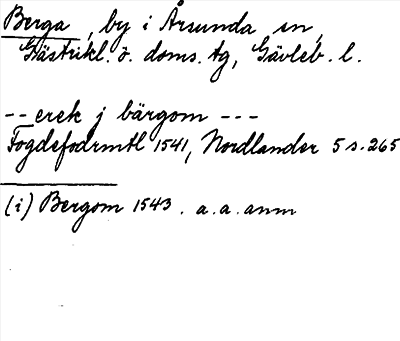 Berga, by i Årsunda sn,
Gästrikl. ö. doms. tg, Gävleb. l.
-- erek j bärgom ---
Fogdefodrmtl 1541, Nordlander 5 s. 265
(i) Bergom 1543. a. a. anm